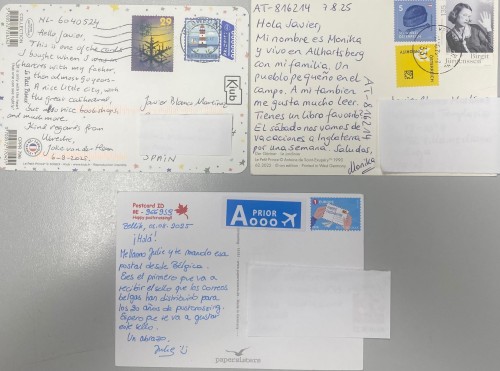 NL-6040524
Hello Javier,
This is one of the cards
I bought when I was in
with my father,
than almost 50 years.
A nice little City, with
the great cathedral,
but also nice bookshops,
and much more.
Kind regards from
Utrecht,
6-8-2025.
29
Klub
Javier Blanco Martínez
SPAIN
AT-816214 7.8.25
Hola Javier,
Mi nombre es Monika
y vivo en Allhartsberg
con mi familia. Un
pueblo pequeño en el
campo. A mi tambien
me gusta mucho leer.
Tienes un libro favorito?
El sábado nos vamos de
vacaciones a Inglaterra
por una semana. Saludos,
Monika
AT-816214
5
Birgit
Jürgenssen
Postcard ID
BE -
Happy postcrossing!
.08.2025
¡Hola!
Me llamo Julie y te mando esa
postal desde Bélgica.
Eres el primero que va a
recibir el sello que los correos
belgas han distribuido para
los 20 años de postcrossing.
Espero que te va a gustar
este sello.
Un abrazo,
Julie
A PRIOR
1
papersisters